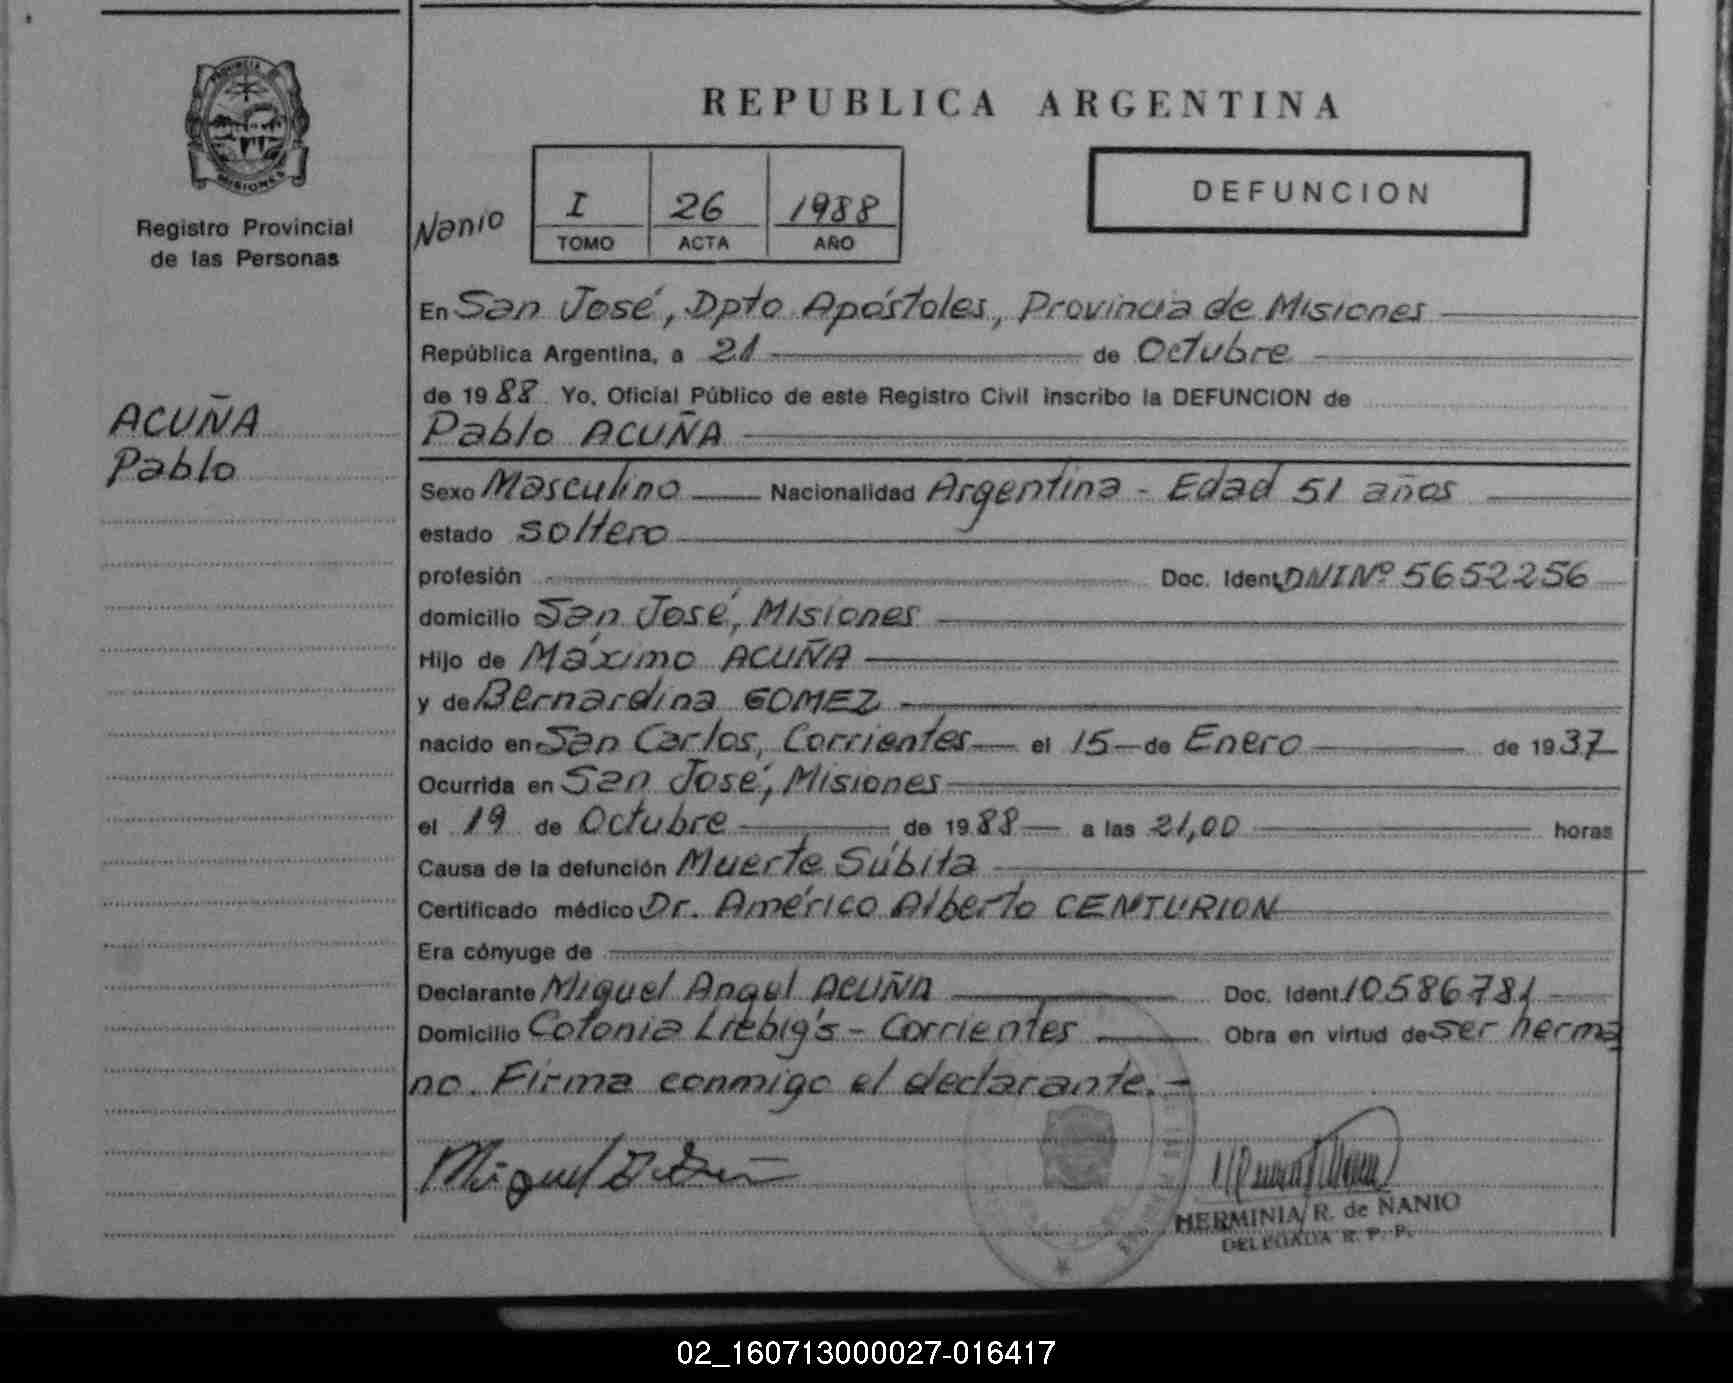 PROVINCIA DE
MISIONES
Registro Provincial
de las Personas
ACUÑA
Pablo
REPUBLICA ARGENTINA
Nanio
I 26 1988
TOMO ACTA AÑO
DEFUNCION
En San José, Dpto Apóstoles, Provincia de Misiones
República Argentina, a 21 de Octubre
de 1988 Yo, Oficial Público de este Registro Civil inscribo la DEFUNCION de
Pablo ACUÑA
Sexo Masculino Nacionalidad Argentina - Edad 51 años
estado soltero
profesión Doc. Ident. DNI Nº 5652256
domicilio San José, Misiones
Hijo de Máximo ACUÑA
y de Bernardina GOMEZ
nacido en San Carlos, Corrientes el 15 de Enero de 1937
Ocurrida en San José, Misiones
el 19 de Octubre de 1988 a las 21,00 horas
Causa de la defunción Muerte Súbita
Certificado médico Dr. Américo Alberto CENTURION
Era cónyuge de
Declarante Miguel Angel ACUÑA Doc. Ident. 10586781
Domicilio Colonia Liebig's - Corrientes Obra en virtud de ser herma
no. Firma conmigo el declarante. -
Miguel
HERMINIA R. de ÑANIO
DELEGADA R. P. P.
02_160713000027-016417